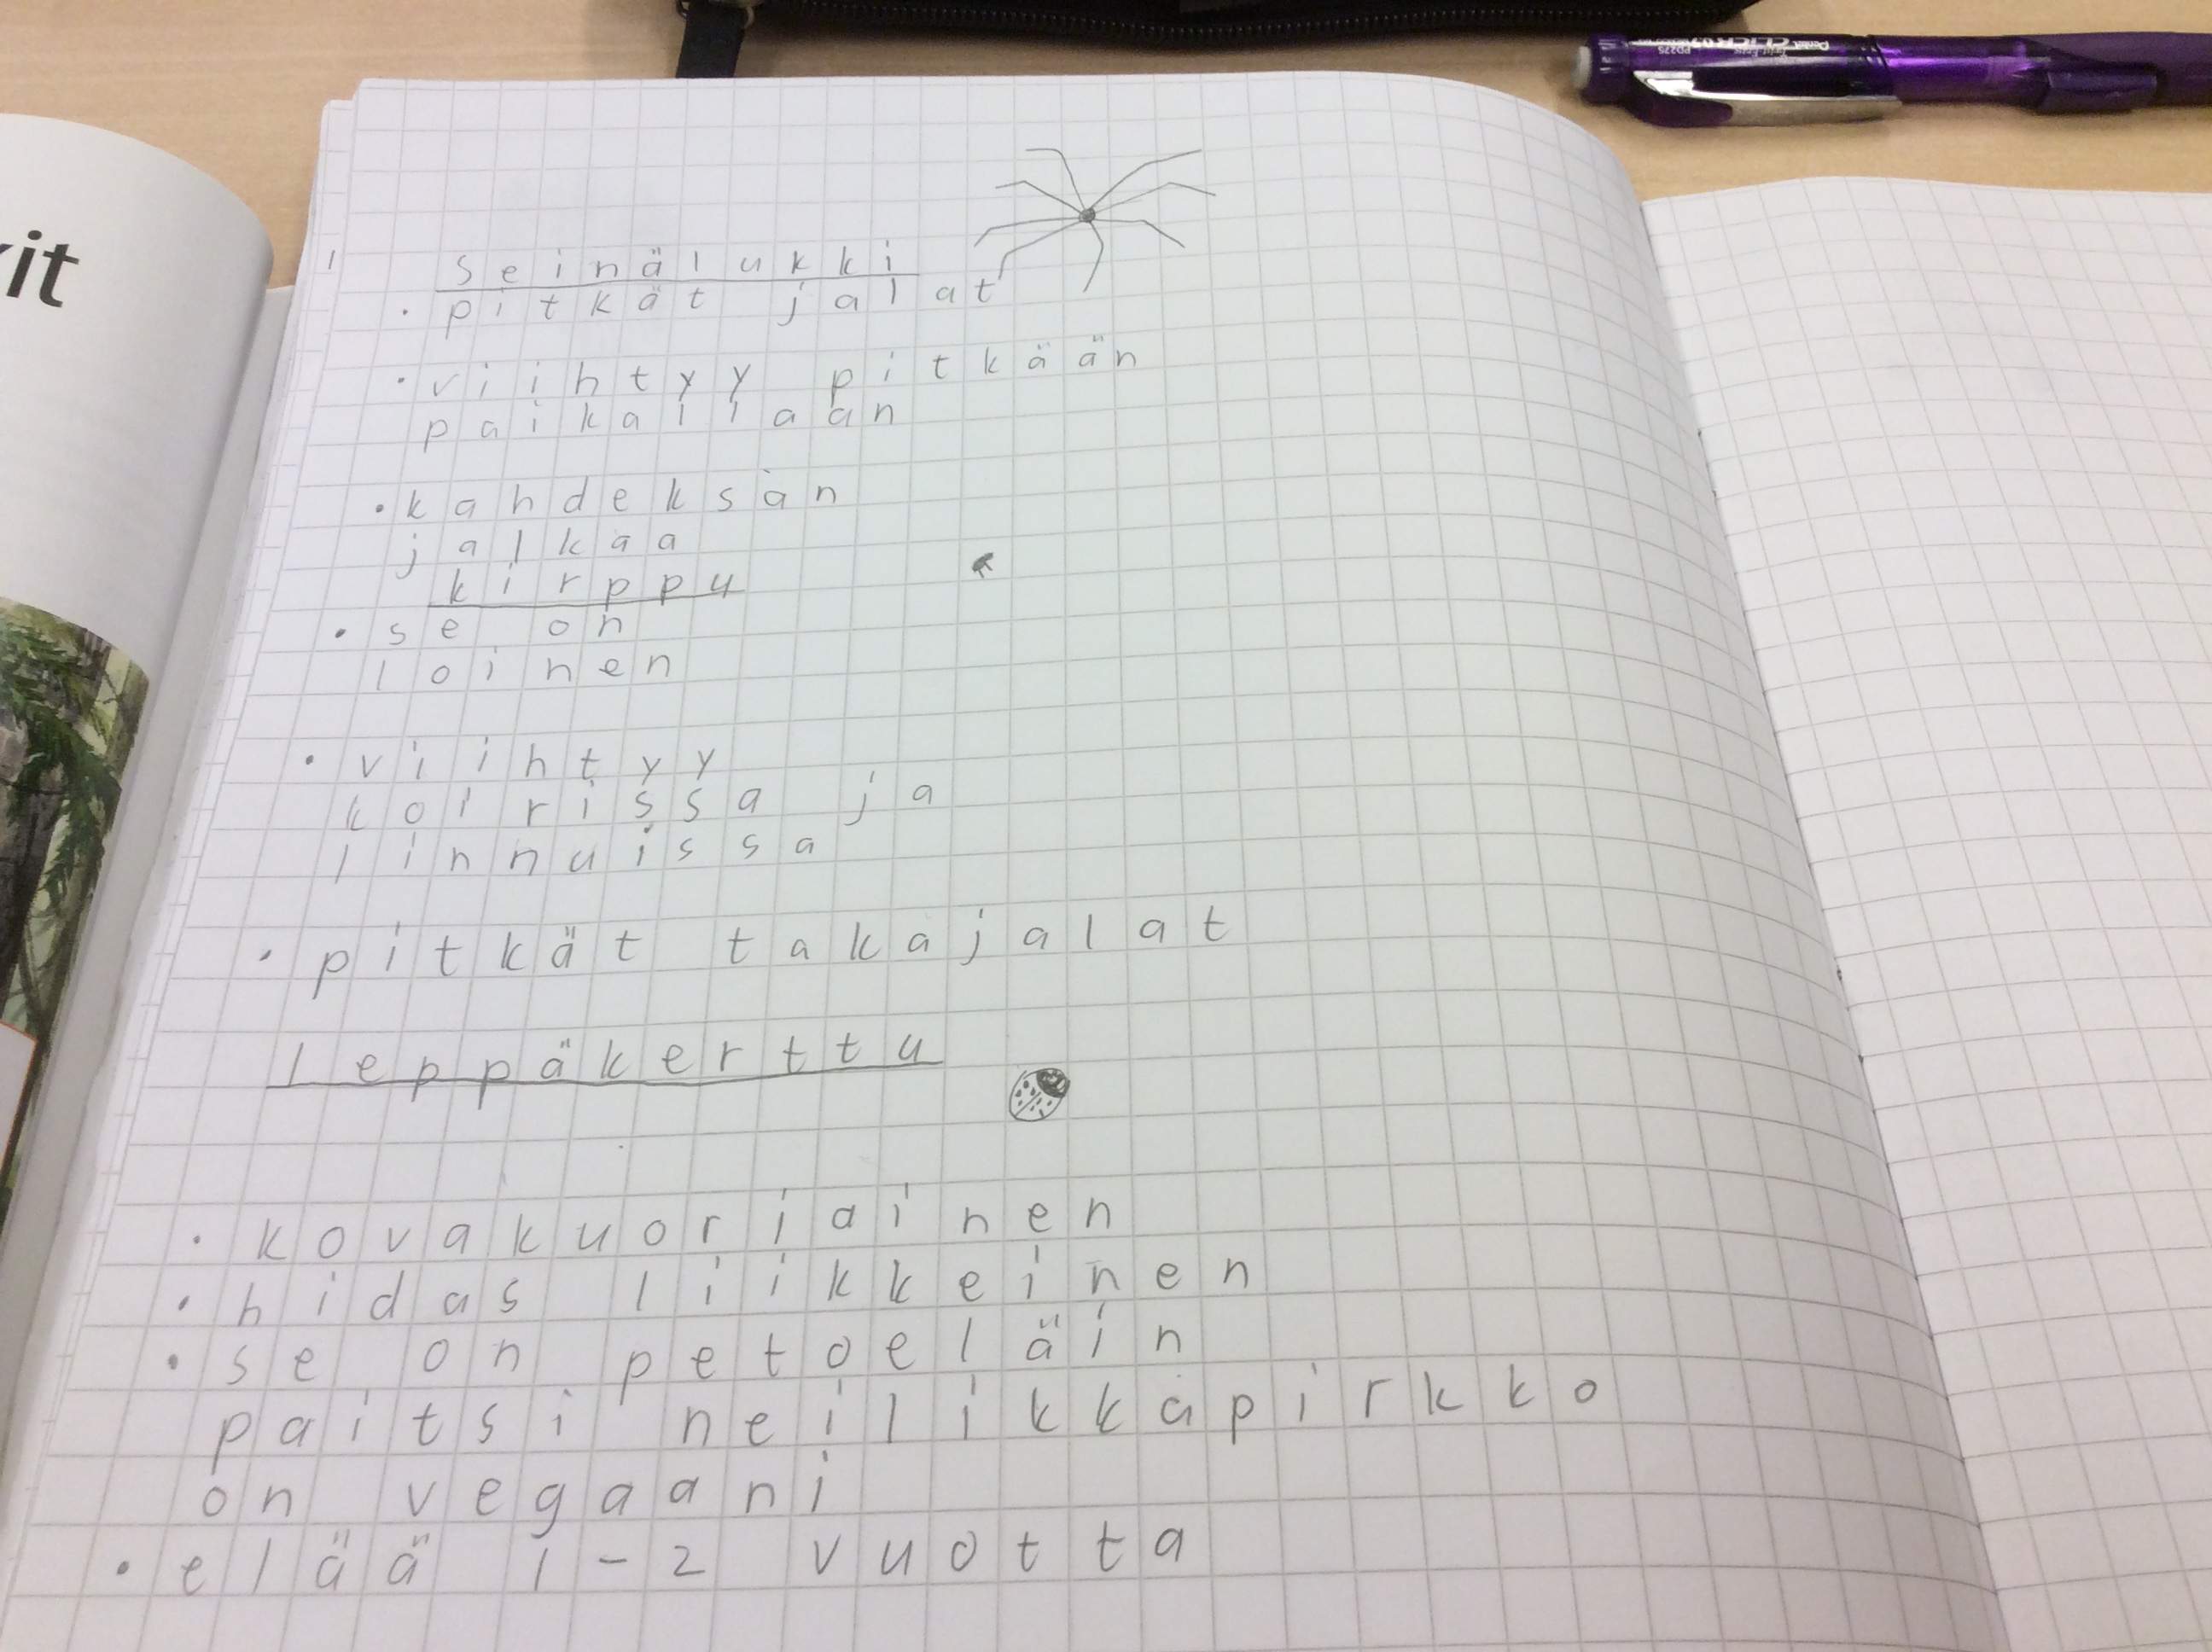 it
Seinälukki
• pitkät jalat
• viihtyy pitkään
paikallaan
• kahdeksan
jalkaa
kirppu
• se on
loinen
• viihtyy
koirissa ja
linnuissa
• pitkät takajalat
leppäkerttu
• kovakuoriainen
• hidas liikkeinen
• se on petoeläin
paitsi neilikkapirkko
on vegaani
• elää 1-2 vuotta
Pentel
CLICK
PD275